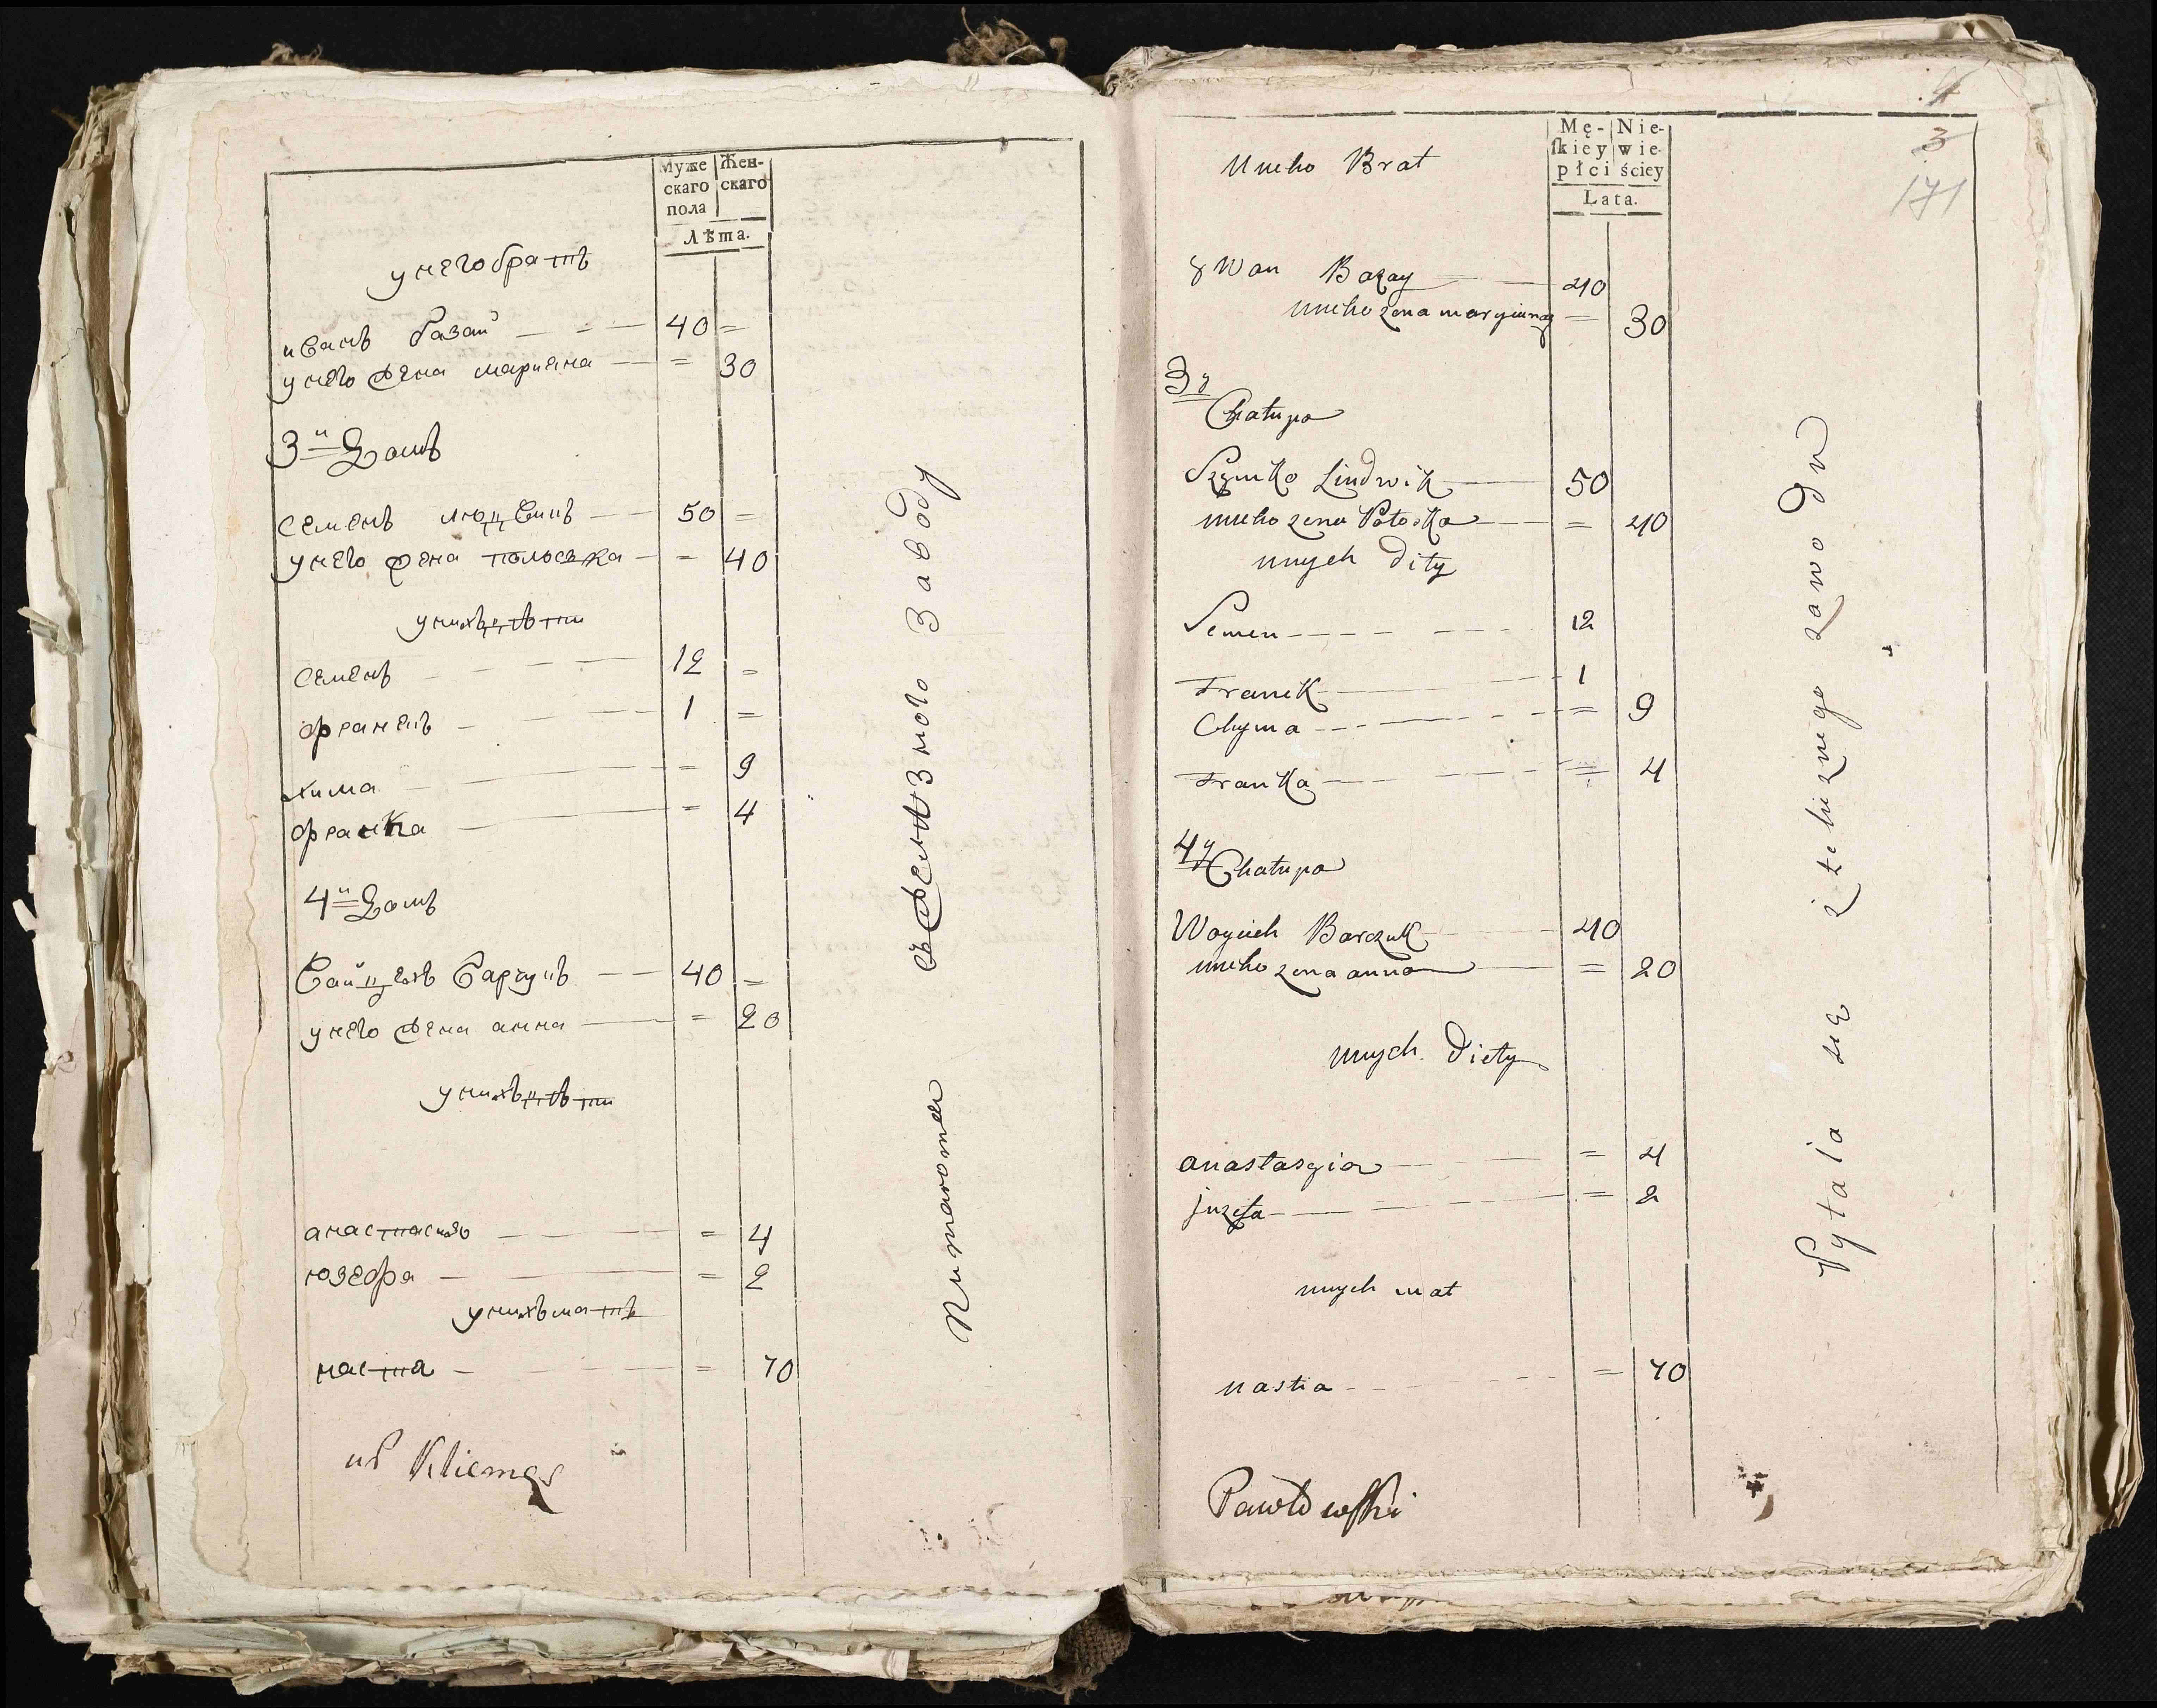 Муже
скаго
пола
Жен-
скаго
Лѣта.
у него братъ
иванъ базай — — — 40 =
у него жена марияна — = 30
3й домъ
семенъ людвикъ — — 50 =
у него жена палоська — = 40
у нихъ дѣти
семенъ — — — 12 =
франекъ — — — 1 =
хима — — = 9
франка — — = 4
4й домъ
вайцехъ барчукъ — — 40 =
у него жена анна — = 20
у нихъ дѣти
анастасия — — — = 4
юзефа — — = 2
у нихъ мать
наста — — = 70
Питается
съ желѣзного заводу
Mę-
skiey
płci
Nie-
wie-
ściey
Lata.
3
171
Uneho Brat
Jwan Bazay — 40
uneho zona maryiana = 30
3y
Chałupa
Szymko Ludwik — 50
uneho zona Pałoska — = 40
unych Dity
Semen — — — 12
Franek — — 1
Chyma — — — = 9
Franka — — = 4
4y Chałupa
Woyciech Barczuk — 40
uneho zona anna — = 20
unych Diety
anastasyia — — = 4
juzefa — — = 2
unych mat
nastia — — = 70
Pawłowski
Pytaia się z żeliznego zawodu